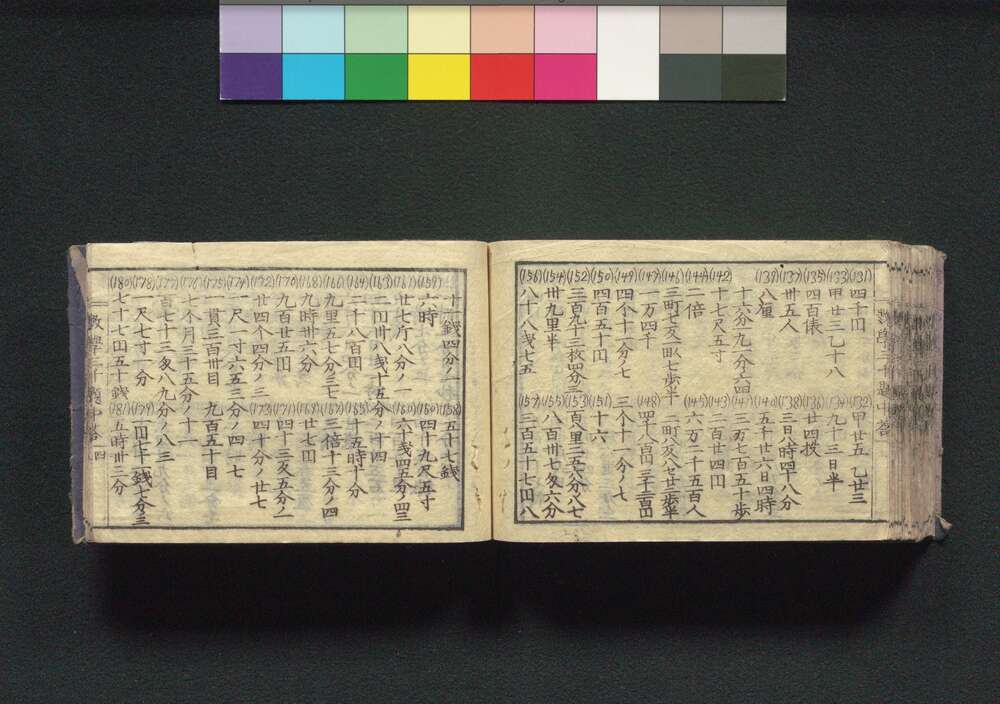 數學三千題中答
(131) 四十円 (132) 甲廿五 乙廿三
(133) 甲廿三乙十八 (134) 九十二日半
(135) 四百俵 (136) 廿四枚
(137) 卅五人 (138) 二日八時四十八分
(139) 八厘 (140) 五千廿六日四時
十六分九二分六四 (141) 三万七百五十歩
(142) 十七尺五寸 (143) 一百廿四円
(144) 二倍 (145) 六万二千五百人
(146) 三町七反 七歩半 二町八反 廿二歩半
(147) 二万四千 (148)
(149) 四个十二分ノ七 三个十一分ノ七
(150) 四百五十円 (151) 十六
(152) 三百九十三枚四分三 (153) 二百八里三五八分八七
(154) 卅九里半 (155) 八百卅七匁六分
(156) 八十八銭七五 (157) 三百五十七円八
十二銭四分ノ一 (158) 五十七銭
(159) 六時 (160) 四十九尺五寸
(161) 廿七斤八分ノ一 六十銭四五分ノ四三
(163) 二円卅八銭十五分ノ十四
(164) 二千八百円 (165) 十五時十分
九里五七分三七 三倍十三分ノ四
(168) 九時卅六分 (169) 廿七円
(170) 九百廿五円 (171) 四十三 五分ノ一
(172) 廿四個四分ノ三 (173) 四十分ノ廿七
(174) 一尺一寸六五三分ノ四一七
(175) 一貫三百卅目 九百五十目
七个月三十五分ノ十一
(177) 百七十三匁八九分ノ八三
(178) 一尺七寸二分 (179) 一円七十二銭七分ノ三
(180) 七十七円五十銭 (181) 五時卅二分
數學三千題中答 四